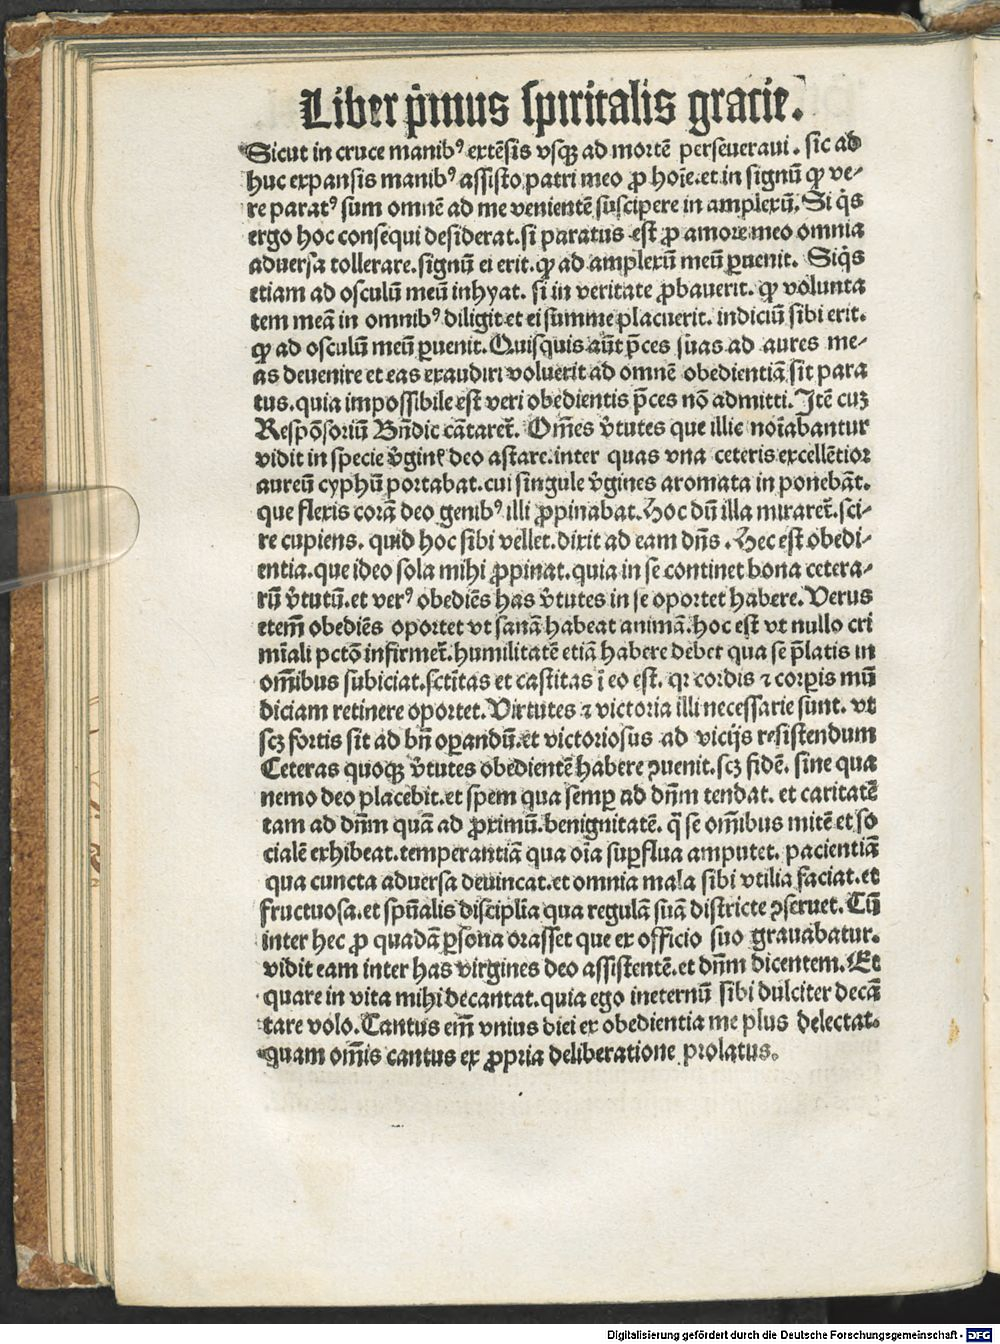 Liber p̄imus spiritalis gracie.
Sicut in cruce manibꝰ extēsis vsqꝫ ad mortē perseueraui. sic ad
huc expansis manibꝰ assisto patri meo ꝓ hoīe. et in signū ꝙ ve⸗
re paratꝰ sum omnē ad me venientē suscipere in amplexū. Si q̇s
ergo hoc consequi desiderat. si paratus est ꝓ amore meo omnia
aduersa tollerare. signū ei erit. ꝙ ad amplexū meū ꝑuenit. Siq̇s
etiam ad osculū meū inhyat. si in veritate ꝓbauerit. ꝙ volunta
tem meā in omnibꝰ diligit et ei summe placuerit. indiciū sibi erit.
ꝙ ad osculū meū ꝑuenit. Quisquis aūt p̄ces suas ad aures me⸗
as deuenire et eas exaudiri voluerit ad omnē obedientiā sit para
tus. quia impossibile est veri obedientis p̄ces nō admitti. Itē cuꝫ
Respōsoriū Bn̄dic cātaret̄. Om̄es v̄tutes que illic noīabantur
vidit in specie v̄ginū deo astare. inter quas vna ceteris excellētior
aureū cyphū portabat. cui singule v̄gines aromata in ponebāt.
que flexis corā deo genibꝰ illi ꝓpinabat. Hoc dū illa miraret̄. sci⸗
re cupiens. quid hoc sibi vellet. dixit ad eam dn̄s. Hec est obedi⸗
entia. que ideo sola mihi ꝓpinat. quia in se continet bona cetera⸗
rū v̄tutū. et verꝰ obediēs has v̄tutes in se oportet habere. Verus
etem̄ obediēs oportet vt sanā habeat animā. hoc est vt nullo cri
mīali pctō infirmet̄. humilitatē etiā habere debet qua se p̄latis in
om̄ibus subiciat. sctītas et castitas ī eo est. qr cordis ⁊ corꝑis mū
diciam retinere oportet. Virtutes ⁊ victoria illi necessarie sunt. vt
scꝫ fortis sit ad bn̄ oꝑandū. et victoriosus ad vicijs resistendum
Ceteras quoqꝫ v̄tutes obedientē habere ꝯuenit. scꝫ fidē. sine qua
nemo deo placebit. et spem qua semꝑ ad dn̄m tendat. et caritatē
tam ad dn̄m quā ad ꝓximū. benignitatē. q̄ se om̄ibus mitē et so
cialē exhibeat. temperantiā qua oīa suꝑflua amputet. pacientiā
qua cuncta aduersa deuincat. et omnia mala sibi vtilia faciat. et
fructuosa. et spūalis disciplīa qua regulā suā districte ꝯseruet. Cū
inter hec ꝓ quadā ꝑsona orasset que ex officio suo grauabatur.
vidit eam inter has virgines deo assistentē. et dn̄m dicentem. Et
quare in vita mihi decantat. quia ego ineternū sibi dulciter decā
tare volo. Cantus em̄ vnius diei ex obedientia me plus delectat.
quam om̄is cantus ex ꝓpria deliberatione prolatus.
Digitalisierung gefördert durch die Deutsche Forschungsgemeinschaft - DFG